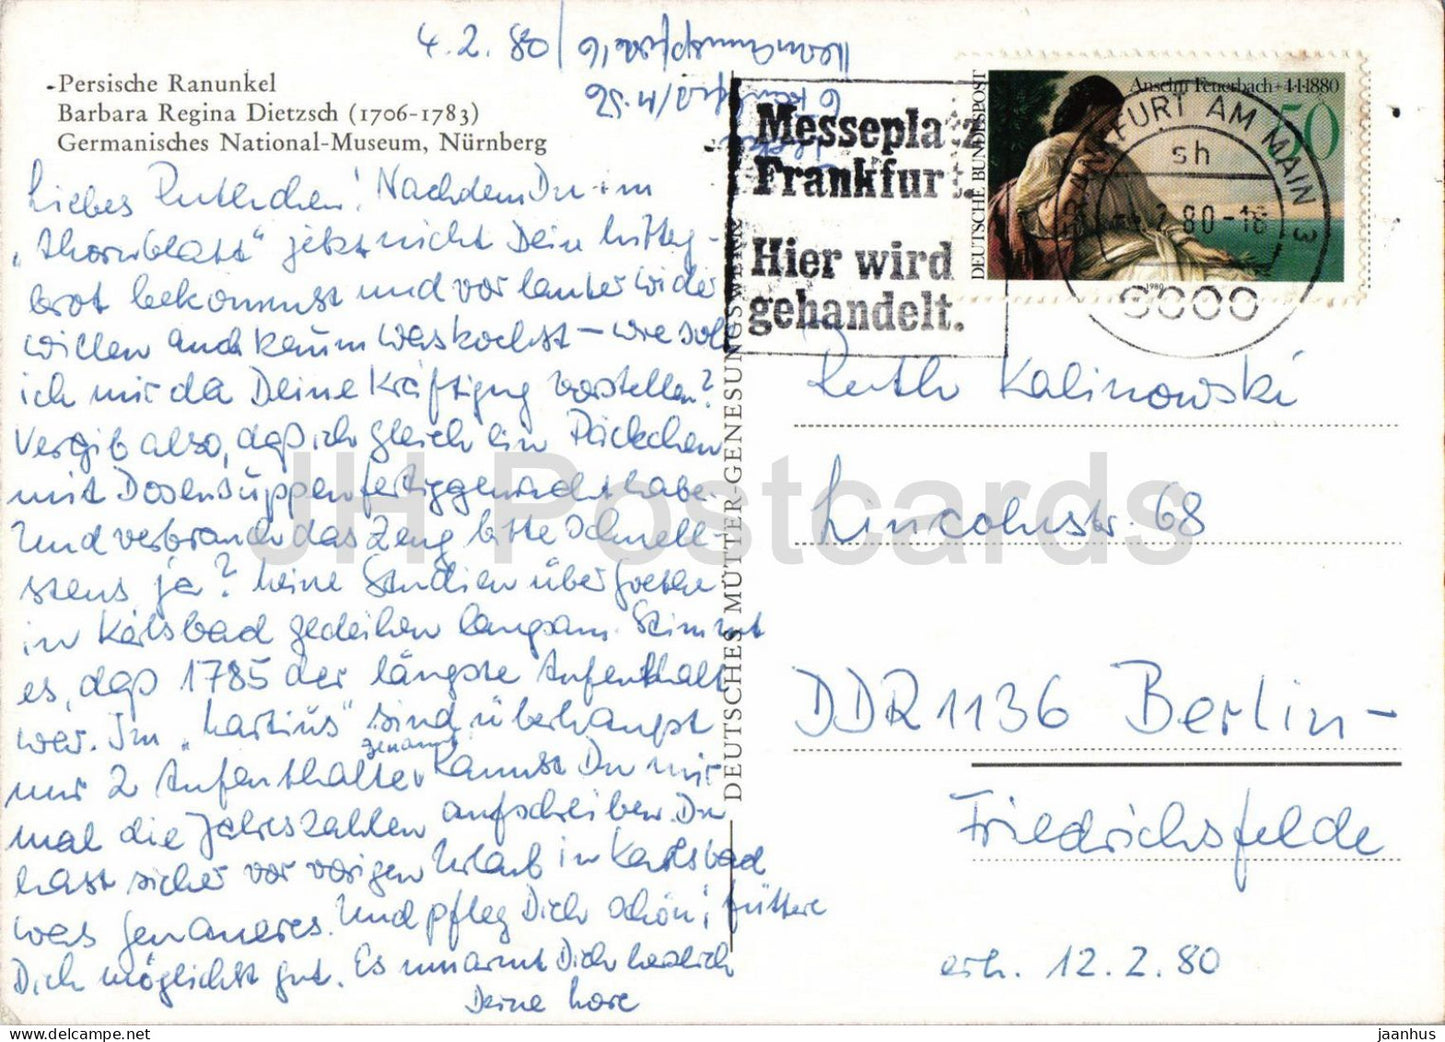 4.2.80/
6
Persische Ranunkel
Barbara Regina Dietzsch (1706-1783)
Germanisches National-Museum, Nürnberg
Liebes Ruthchen! Nachdem Du im
„Thornblatt" jetzt nicht Dein Mittag-
brot bekommst und vor lauter Wider
willen auch kaum was kochst – wie soll
ich mir da Deine Kräftigung vorstellen?
Vergib also, daß ich gleich ein Päckchen
mit Dosensuppen fertiggemacht habe.
Und verbrauch das Zeug bitte schnell-
stens, ja? Meine Studien über Goethe
in Karlsbad gedeihen langsam. Stimmt
es, daß 1785 der längste Aufenthalt
war. Im „ sind überhaupt
nur 2 Aufenthalte genannt. Kannst Du mir
mal die Jahreszahlen aufschreiben. Du
hast sicher vor vorigen Urlaub in Karlsbad
was genaueres. Und pfleg Dich schön; füttere
Dich möglichst gut. Es umarmt Dich herzlich
Deine Lore
DEUTSCHES MÜTTER-GENESUNGSWERK
Messeplatz
Frankfurt.
Hier wird
gehandelt.
DEUTSCHE BUNDESPOST
Anselm Feuerbach +4·1·1880
50
FRANKFURT AM MAIN 3
sh
-4.2.80-18
6000
1980
Ruth Kalinowski
Lincolnstr. 68
DDR 1136 Berlin-
Friedrichsfelde
erh. 12.2.80
JH Postcards
jaanhus @ delcampe.net